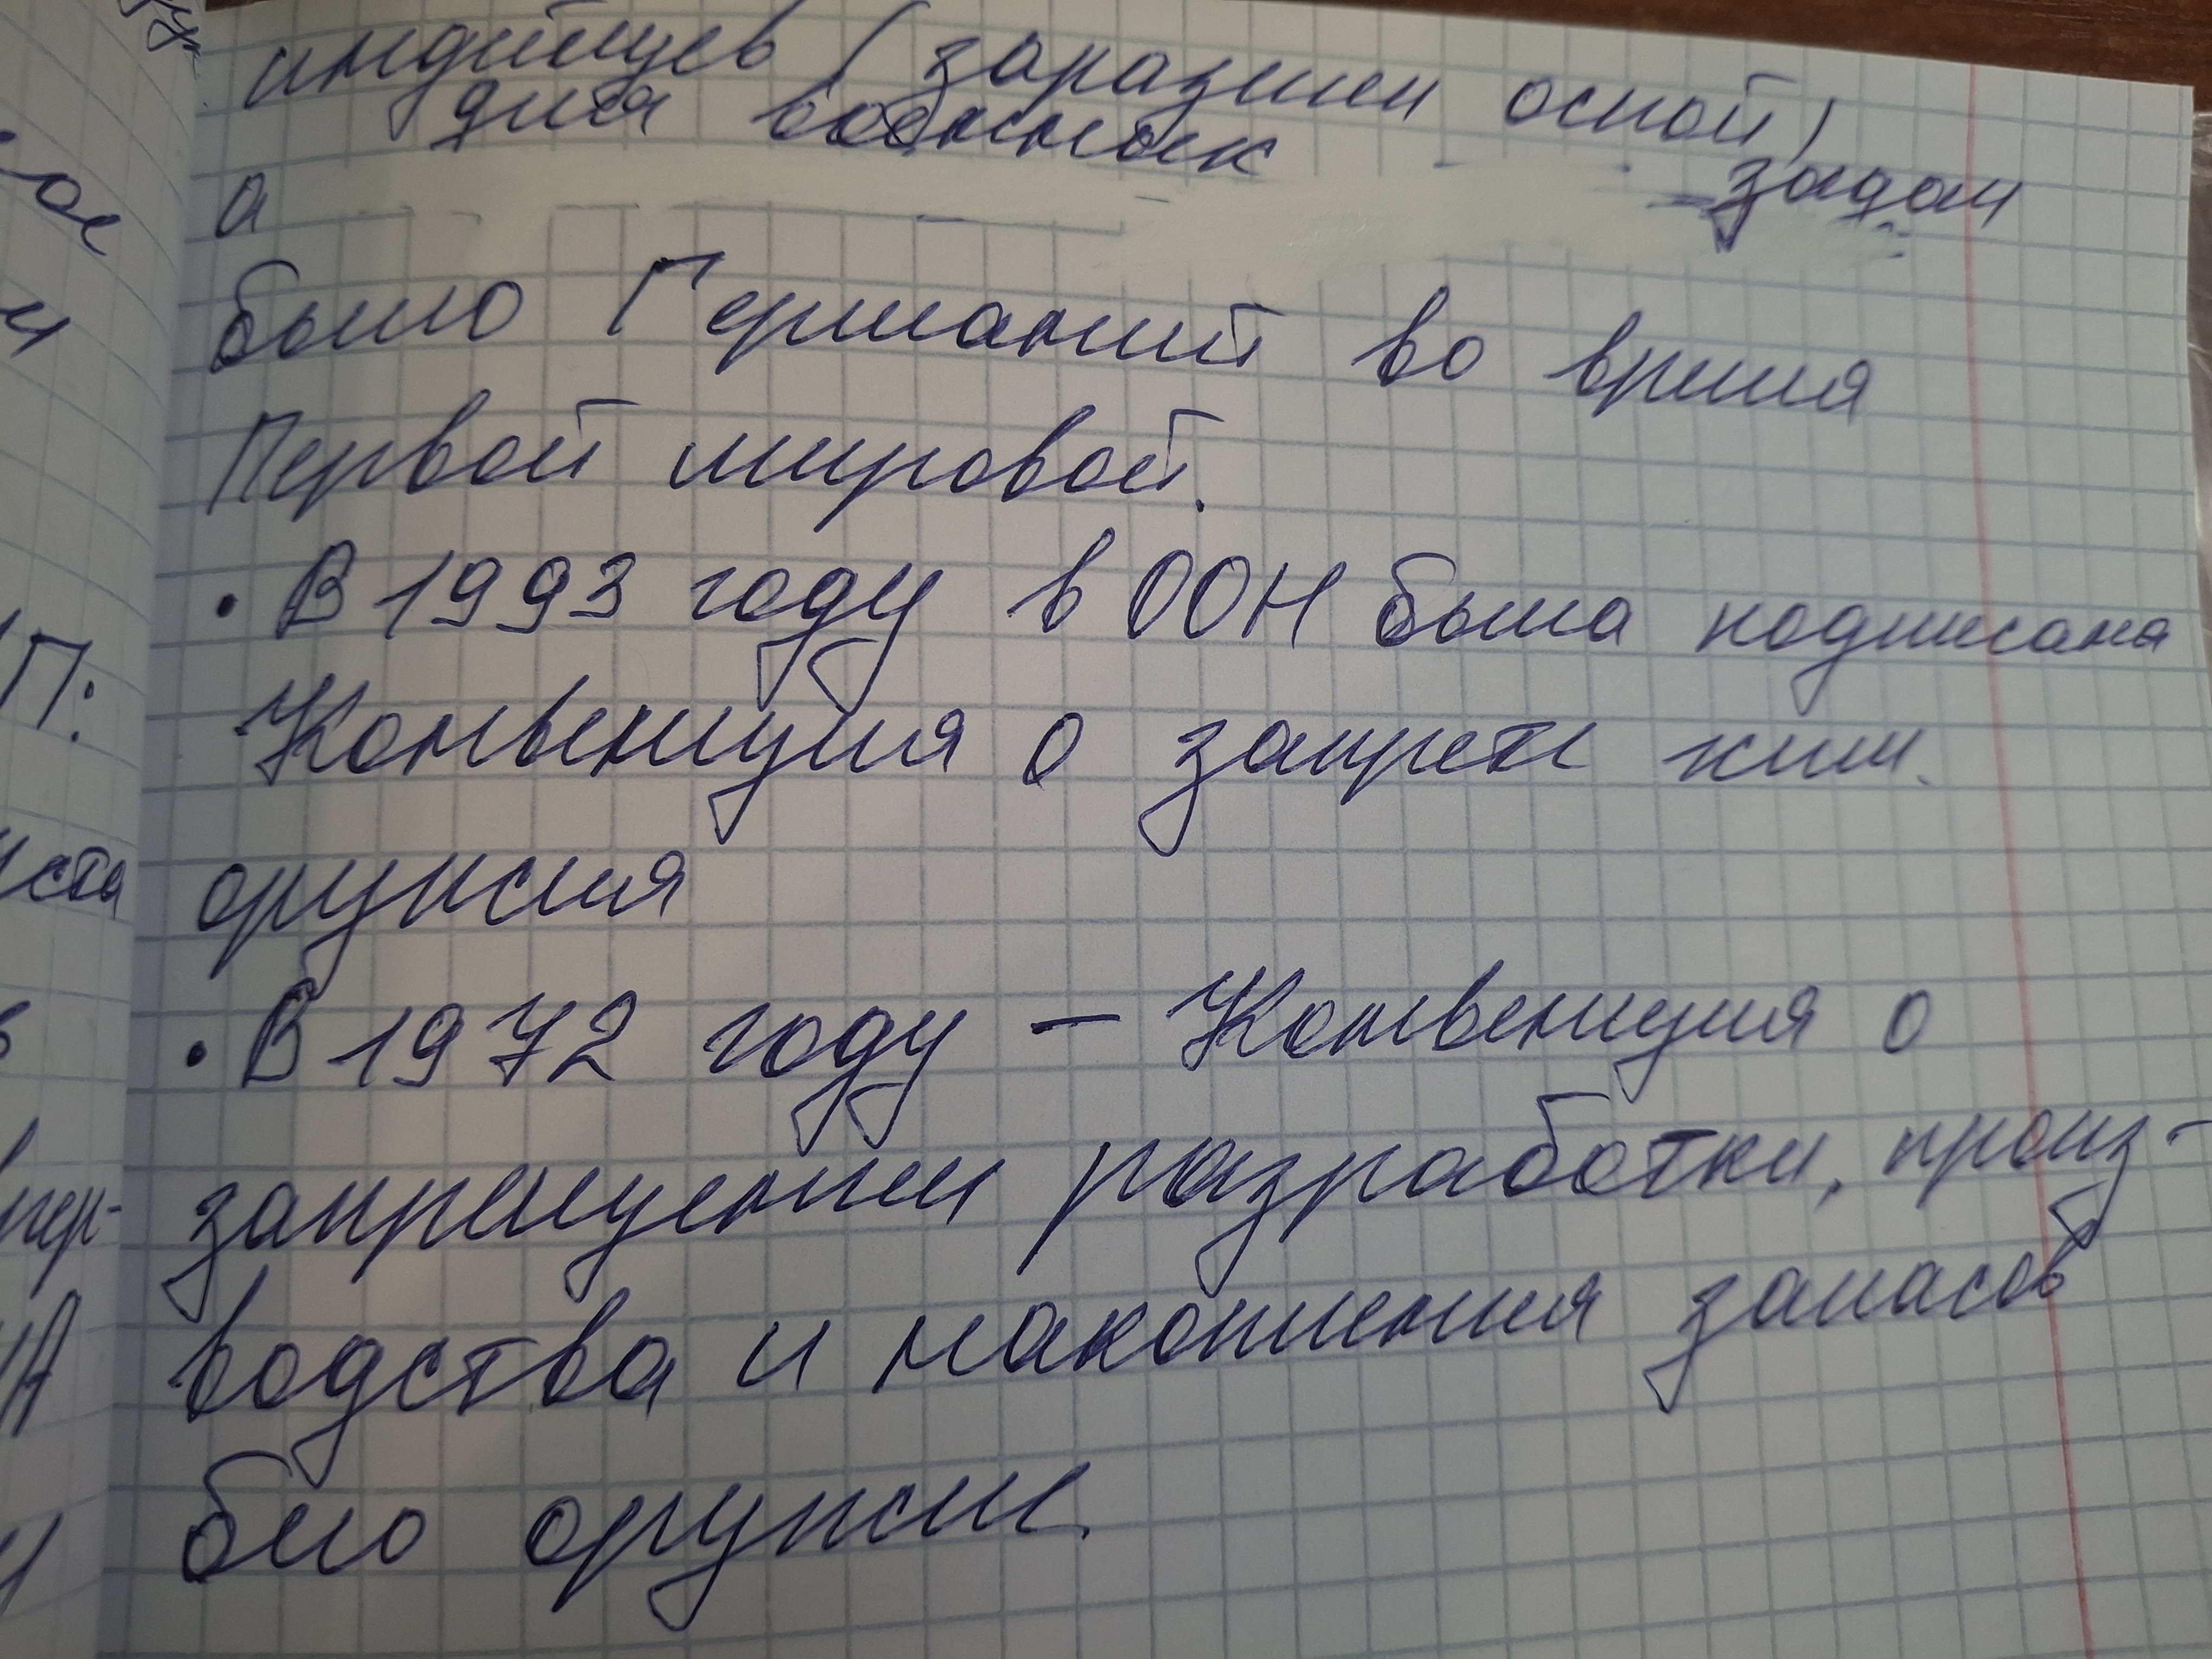 индейцев (заразили оспой)
для военных
а задач
было Германией во время
Первой мировой.
• В 1993 году в ООН была подписана
Конвенция о запрете хим.
оружия
• В 1972 году – Конвенция о
запрещении разработки, произ-
водства и накопления запасов
био оружие.
ое
и
П:
иста
в
пер-